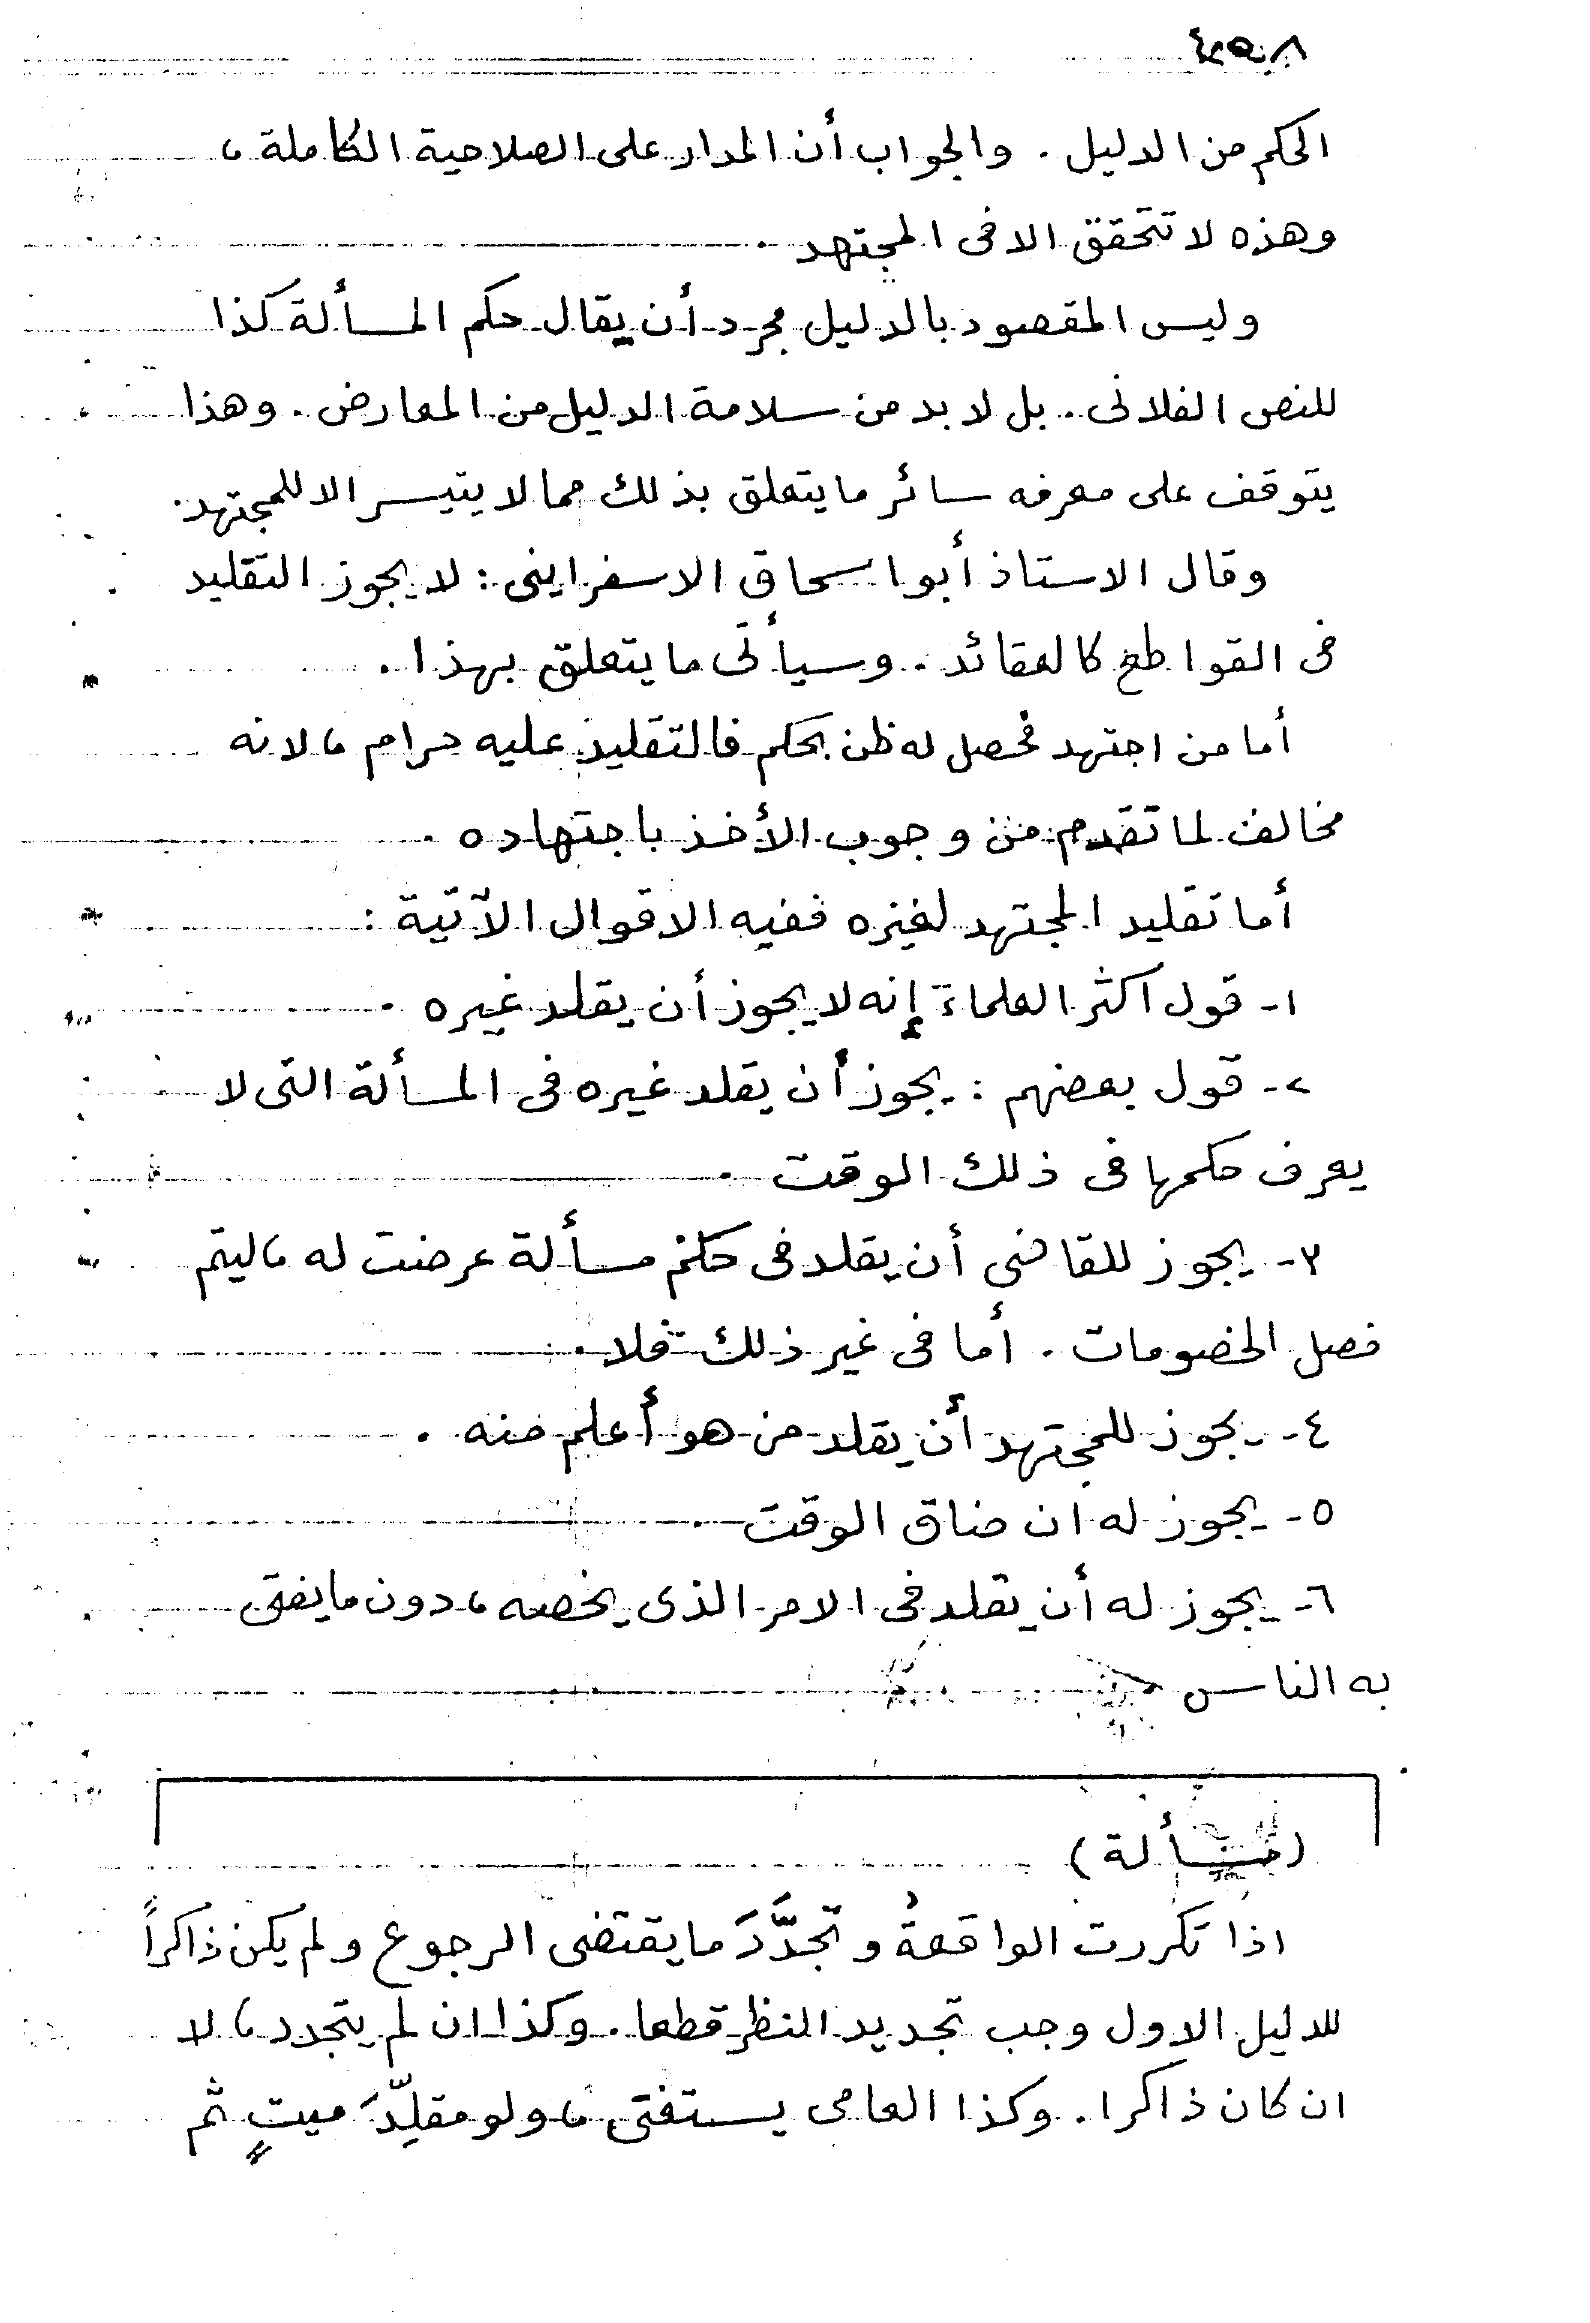 الحكم من الدليل . والجواب أن المدار على الصلاحية الكاملة ،
وهذه لا تتحقق الا فى المجتهد .
وليس المقصود بالدليل مجرد أن يقال حكم المسألة كذا
للنص الفلانى . بل لا بد من سلامة الدليل من المعارض . وهذا
يتوقف على معرفه سائر ما يتعلق بذلك مما لا يتيسر الا للمجتهد .
وقال الاستاذ أبو اسحاق الاسفراينى : لا يجوز التقليد
فى القواطع كالعقائد . وسيأتى ما يتعلق بهذا .
أما من اجتهد فحصل له ظن بحكم فالتقليد عليه حرام ، لانه
مخالف لما تقدم من وجوب الأخذ باجتهاده .
أما تقليد المجتهد لغيره ففيه الاقوال الآتية :
١- قول أكثر العلماء إنه لا يجوز أن يقلد غيره .
٢- قول بعضهم : يجوز أن يقلد غيره فى المسألة التى لا
يعرف حكمها فى ذلك الوقت .
٣- يجوز للقاضى أن يقلد فى حكم مسألة عرضت له ، ليتم
فصل الخصومات . أما فى غير ذلك فلا .
٤- يجوز للمجتهد أن يقلد من هو أعلم منه .
٥- يجوز له ان ضاق الوقت .
٦- يجوز له أن يقلد فى الامر الذى يخصه ، دون ما يفتى
به الناس
( مسألة )
اذا تكررت الواقعةُ وتجدَّدَ ما يقتضى الرجوع ولم يكن ذاكراً
للدليل الاول وجب تجديد النظر قطعا . وكذا ان لم يتجدد ، لا
ان كان ذاكرا . وكذا العامى يستفتى ، ولو مقلِّدَ ميتٍ ثم